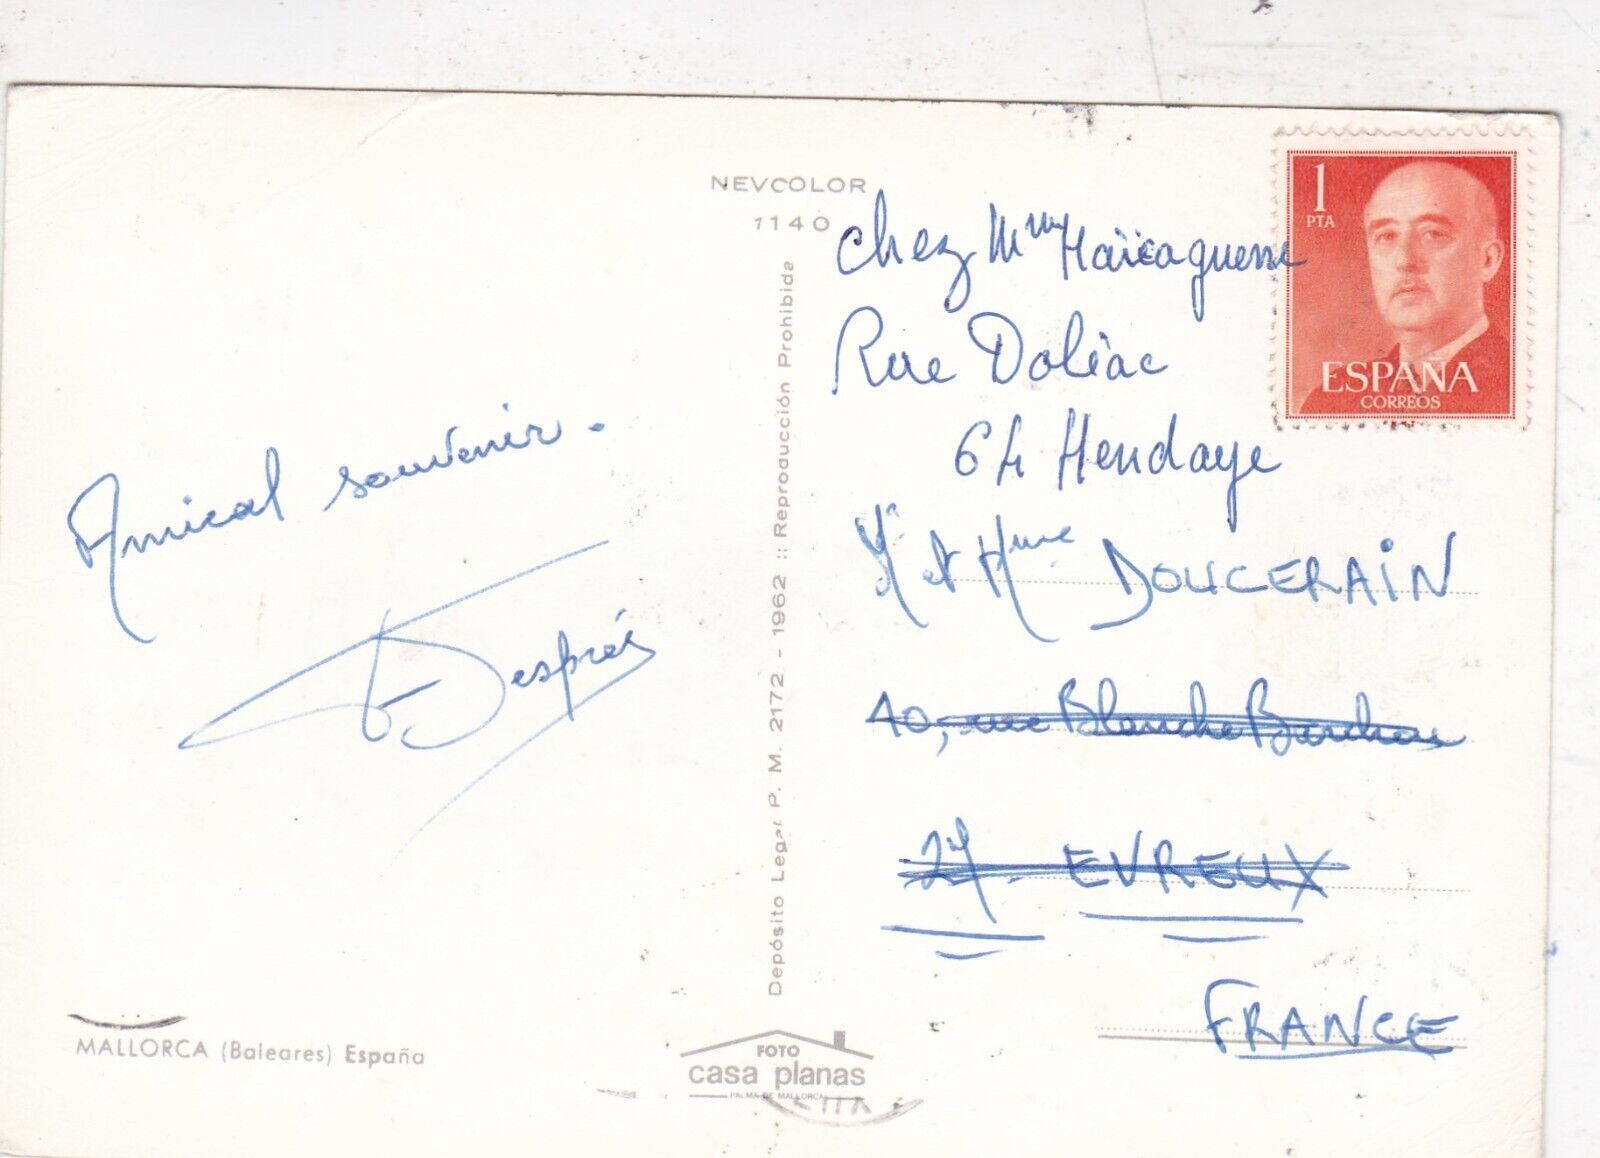 NEVCOLOR
1140
Depósito Legal P. M. 2172 - 1962 :: Reproducción Prohibida
Amical souvenir.
Després
MALLORCA (Baleares) España
FOTO
casa planas
PALMA DE MALLORCA
1
PTA
ESPAÑA
CORREOS
chez Mme
Rue Doléac
64 Hendaye
Mr et Mme DOUCERAIN
40, rue Blanche Barchou
27 - EVREUX
FRANCE